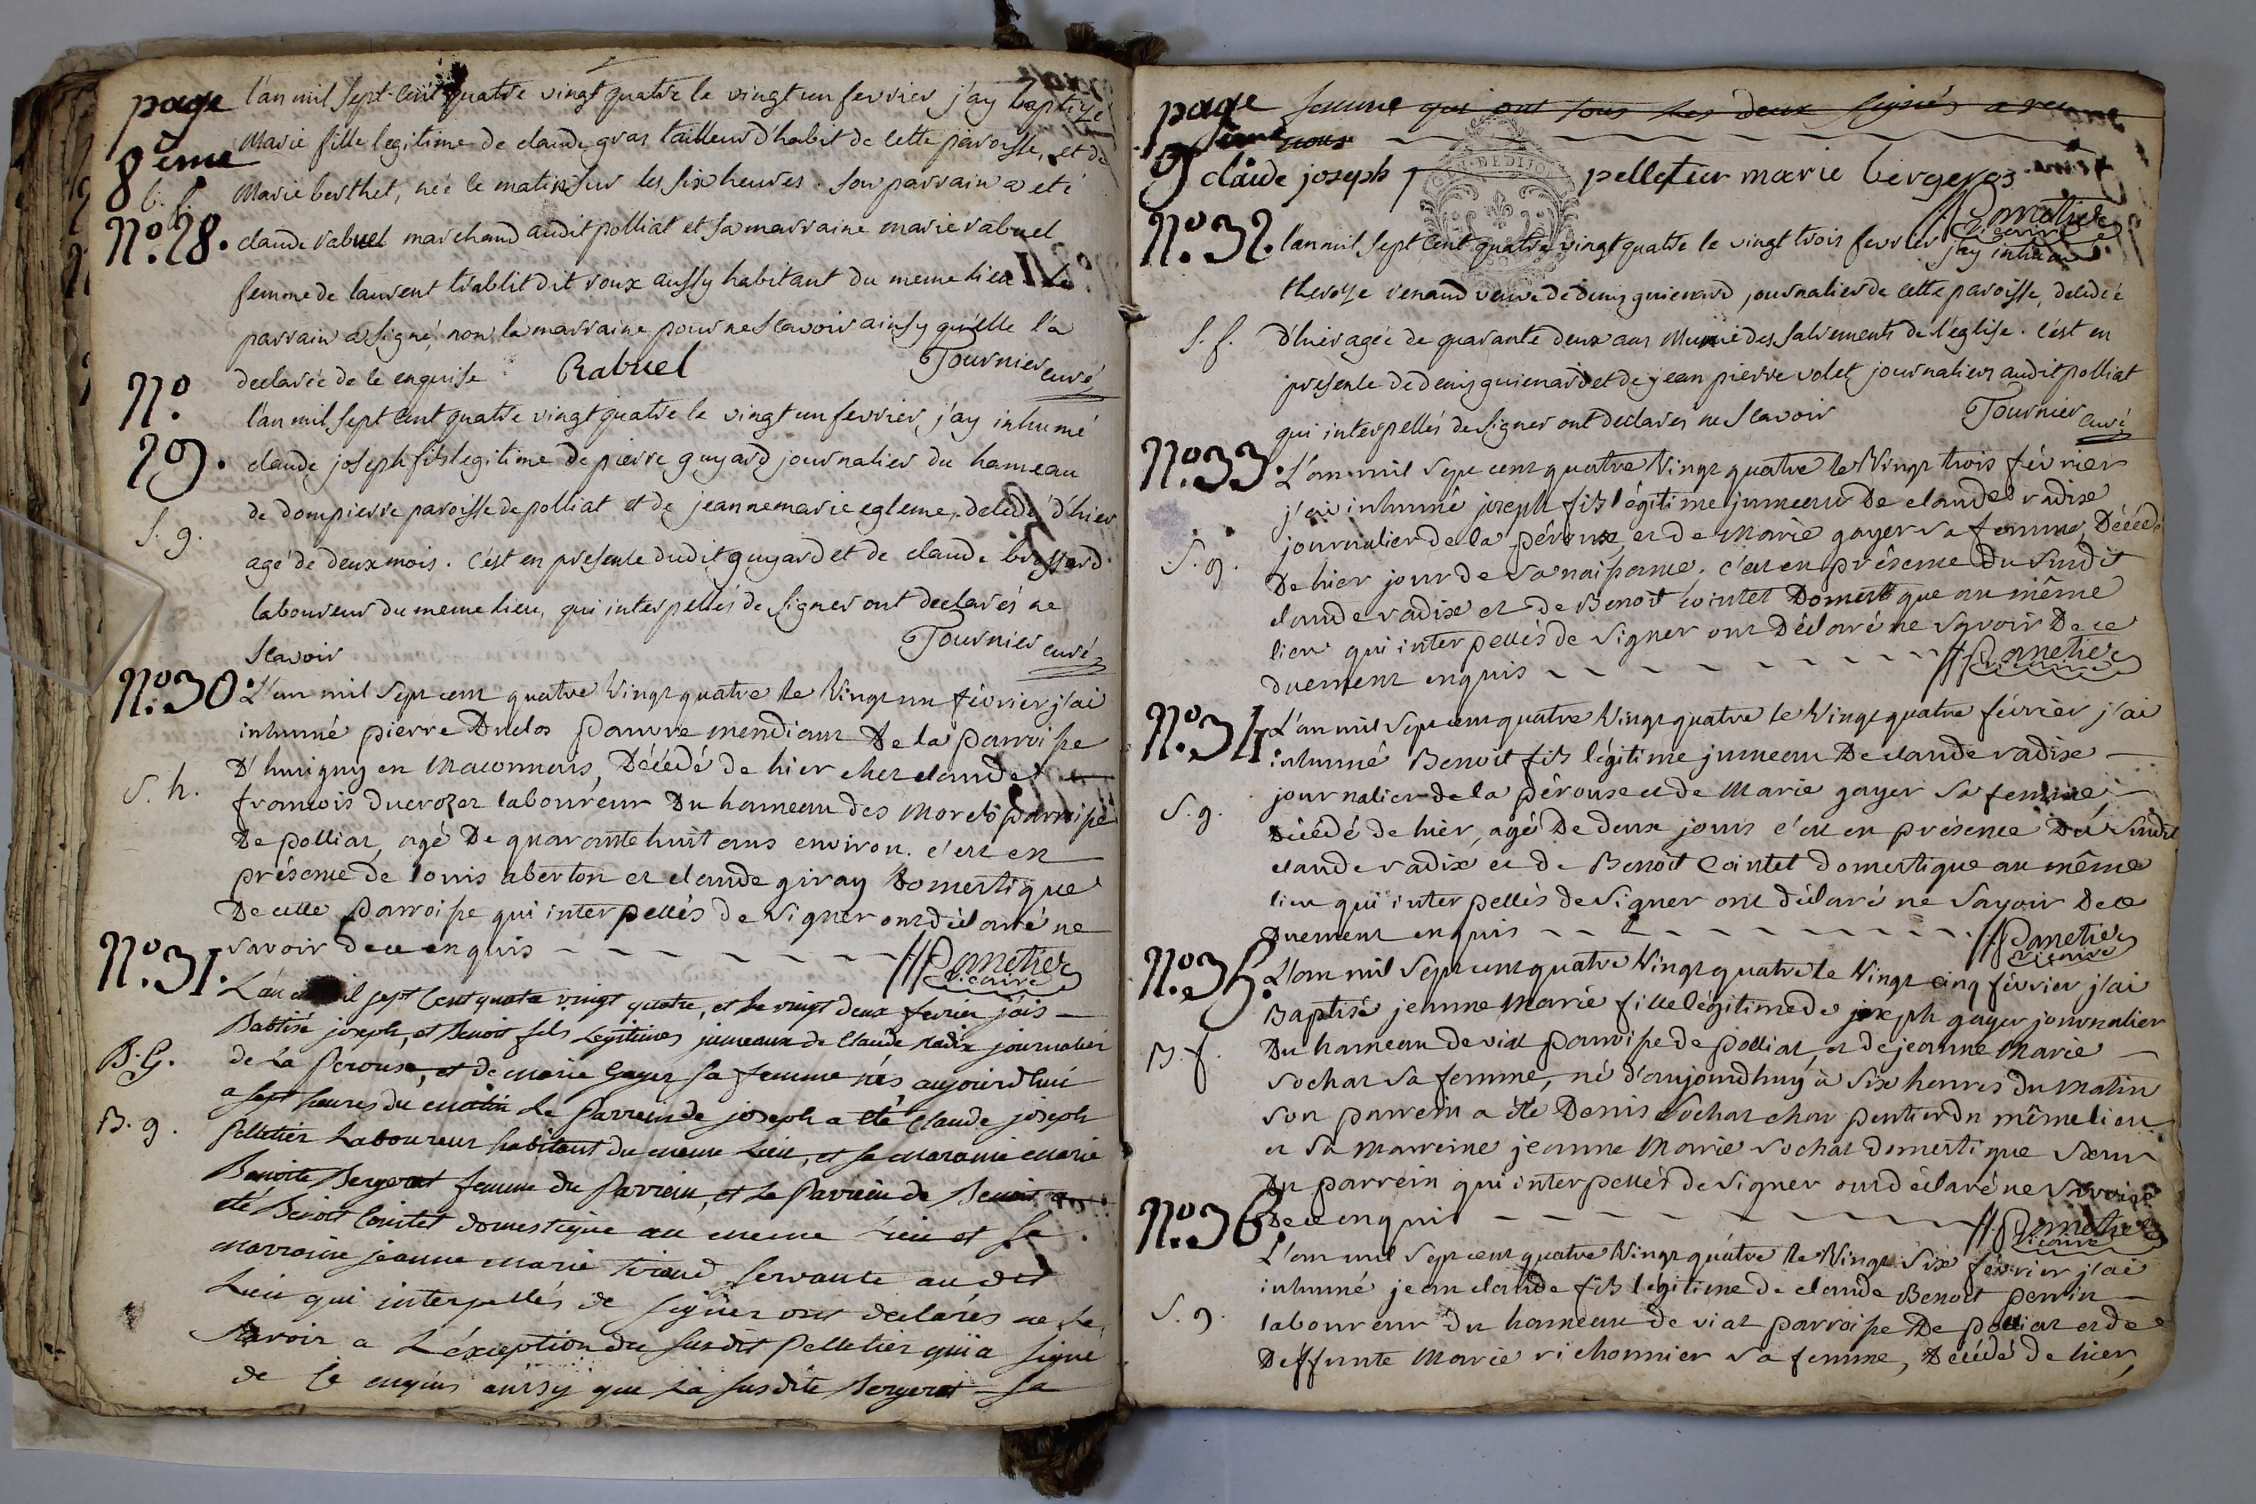 page
8ème
l'an mil sept cent quatre vingt quatre le vingt un fevrier j'ay baptizé
Marie fille legitime de claude gras tailleur d'habit de cette paroisse, et de
b. f.
Marie berthet, née le matin sur les six heures. son parrain a eté
No. 28.
claude rabuel marchand audit polliat et sa marraine marie rabuel
femme de laurent trablit dit roux aussy habitant du meme lieu Le
parrain a signé, non la marraine pour ne scavoir ainsy qu'elle l'a
declarée de ce enquise Rabuel Tournier curé
No.
29.
l'an mil sept cent quatre vingt quatre le vingt un fevrier, j'ay inhumé
claude joseph fils legitime de pierre guyard journalier du hameau
de dompierre paroisse de polliat et de jeanne marie egleme, decedé d'hier
S. g.
agé de deux mois. c'est en presence dudit guyard et de claude brossard
laboureur du meme lieu, qui interpellés de signer ont declarés ne
scavoir Tournier curé
No. 30.
L'an mil sept cent quatre vingt quatre le vingt un février j'ai
inhumé pierre Duclos pauvre mendiant De la parroisse
D'hurigny en Maconnois, Décédé de hier chez claude
S. h.
francois ducrozet labouréur Du hameau des Morets parroisse
De polliat, agé De quarante huit ans environ. c'est en
présence de louis aberton et claude giray Domestique
De cette parroisse qui interpellés de signer ont déclaré ne
savoir de ce enquis Panetier
vicaire
No. 31.
L'an mil sept Cent quatre vingt quatre, et le vingt deux fevrier j'ais
Babtisé joseph, et Benoit fils Legitimes jumeaux de Claude Radix journalier
B. G.
de La Perouse, et de marie Gayer sa femme nés aujourd'huit
a sept heures du matin Le Parrein de joseph a été Claude joseph
B. g.
Pelletier Laboureur habitant du meme Lieu, et sa maraine marie
Benoite Bergerot femme du Parrein, et Le Parrein de Benoit a
été Benoit Cointet domestique au meme Lieu et sa
marraine jeanne marie servante au dit
Lieu qui interpellés de signer ont declarés ne le
savoir a L'éxception du susdit Pelletier qui a signé
de Ce enquis ainsy que La susdite Bergerot sa
page
9ème
femme qui ont tous les deux signés avec
nous
claude joseph pelletier marie bergeros
Panetier
vicaire
No. 32.
l'an mil sept cent quatre vingt quatre le vingt trois fevrier j'ay inhumé
theroze renaud veuve de denis guienard journalier de cette paroisse, decedée
S. f.
d'hier agée de quarante deux ans Munie des sacrements de l'eglise. c'est en
presence de denis guienard et de jean pierre volet journaliers audit polliat
qui interpellés de signer ont declarés ne scavoir Tournier curé
No. 33.
L'an mil sept cent quatre vingt quatre le vingt trois février
j'ai inhumé joseph fils légitime jumeau De claude radix
journalier de la pérouse, et de Marie gayer sa femme, Décédé
S. g.
De hier jour de sa naissance, c'est en présence Du susdit
claude radix et de Benoit cointet Domestique au même
lieu qui interpellés de signer ont Déclaré ne savoir De ce
duement enquis Panetier
vicaire
No. 34.
L'an mil sept cent quatre vingt quatre le vingt quatre février j'ai
inhumé Benoit fils légitime jumeau De claude radix
journalier de la pérouse et de Marie gayer sa femme
S. g.
Décédé de hier, agé De deux jours c'est en présence Du susdit
claude radix et de Benoit Cointet domestique au même
lieu qui interpellés de signer ont déclaré ne savoir De ce
Duement enquis Panetier
vicaire
No. 35.
L'an mil sept cent quatre vingt quatre le vingt cinq février j'ai
Baptisé jeanne Marie fille legitime de joseph gayer journalier
B. f.
Du hameau de viat parroisse de polliat, et de jeanne Marie
sochat sa femme, né d'aujourdhuy à six heures du matin
son parrein a été Denis sochat charpentier du même lieu
et sa Marreine jeanne Marie sochat domestique sœur
Du parrein qui interpellés de signer ont déclaré ne savoir
De ce enquis Panetier
vicaire
No. 36.
L'an mil sept cent quatre vingt quatre le vingt six février j'ai
inhumé jean claude fils légitime de claude Benoit perrin
S. g.
laboureur du hameau de viat parroisse De polliat et de
Deffunte Marie richonnier sa femme, Décédé de hier,